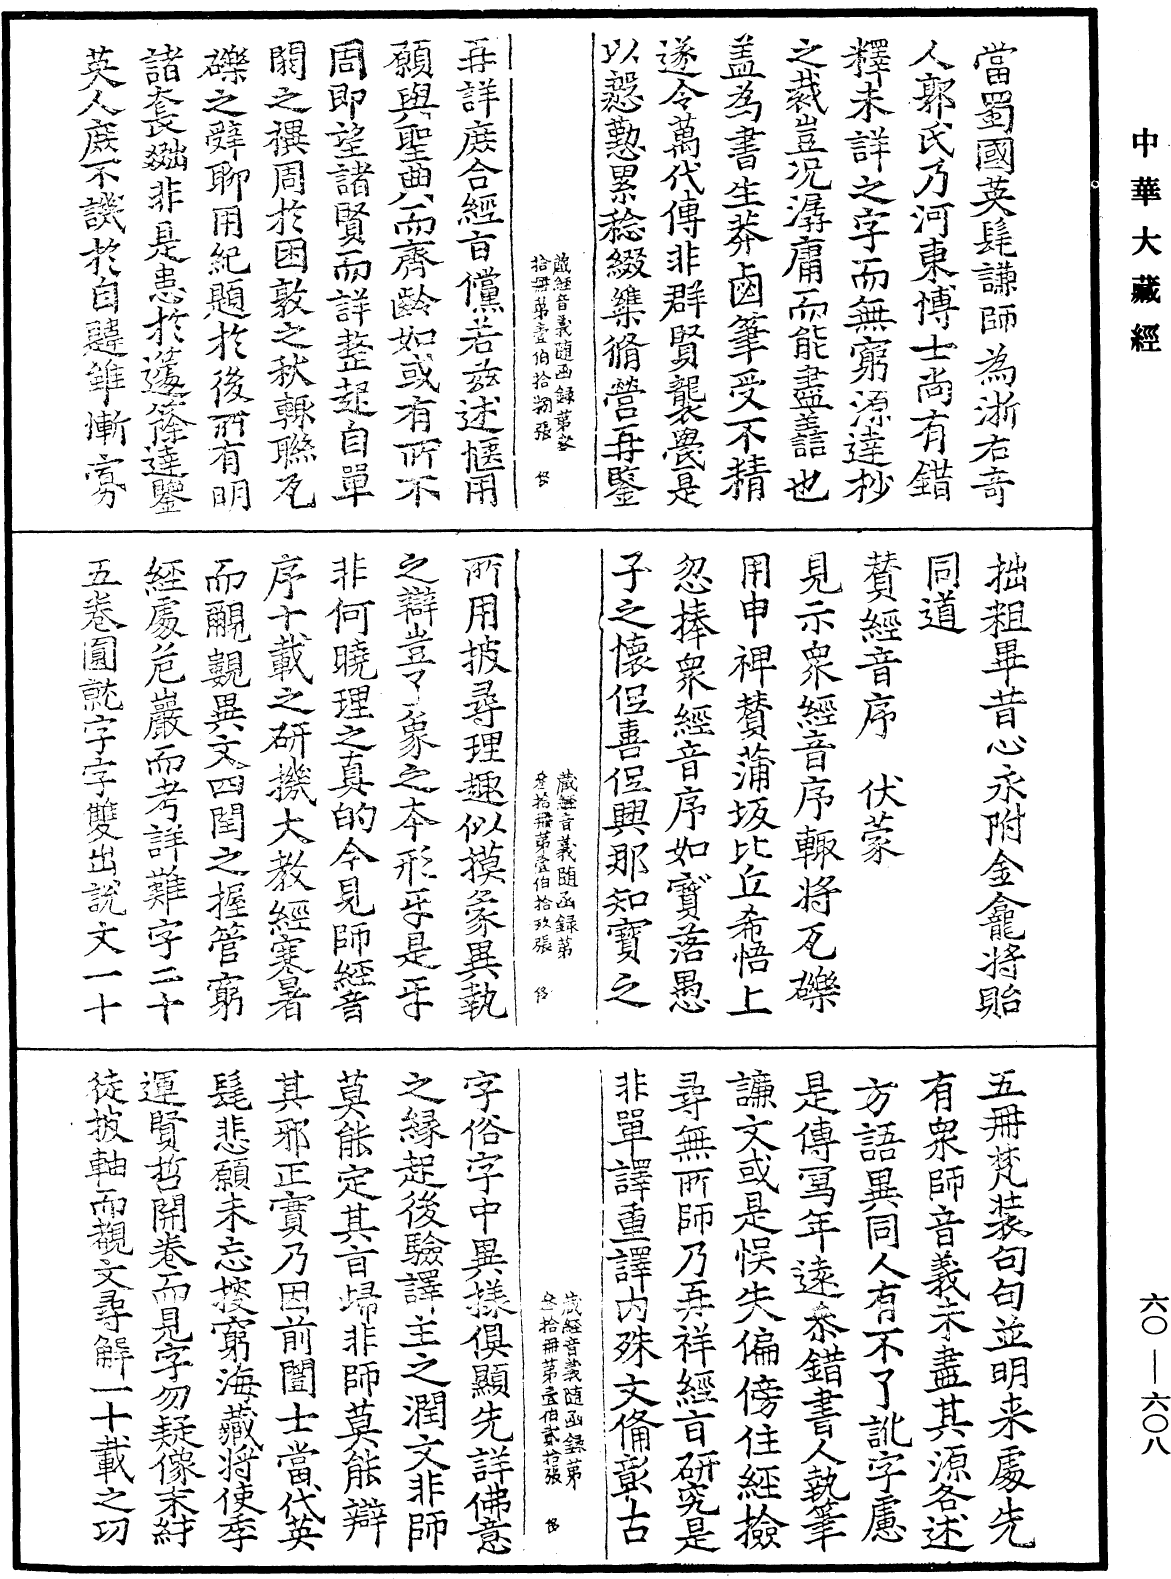 中華大藏經
當蜀國英髦謙師為浙右奇
人郭氏乃河東博士尚有錯
釋未詳之字而無窮源達杪
之裁豈況潺庸而能盡善也
盖為書生莽鹵筆受不精
遂令萬代傳非群賢襲畏是
以慇懃累稔綴緝脩營再鑒
藏經音義随函録第叁
拾冊第壹伯拾捌張
再詳庶合經音儻若兹述愜用
願與聖典而齊齡如或有所不
周即望諸賢而詳整起自單
閼之禩周於困敦之秋輙聯瓦
礫之辝聊用紀題於後所有明
諸套齣非是患於蘧篨達鑒
英人庶不譏於自韙雖慚寡
拙粗畢昔心永附金龕將貽
同道
賛經音序　伏蒙
見示衆經音序輙將瓦礫
用申裨賛蒲坂比丘希悟上
忽捧衆經音序如寳落愚
子之懷但喜但興那知寳之
藏經音義随函録第
叁拾冊第壹伯拾玖張
所用披尋理趣似摸象異執
之辯豈了象之本形乎是乎
非何曉理之真的今見師經音
序十載之研機大教經寒暑
而覼覶異文四閏之握管窮
經處危巖而考詳難字二十
五卷圓就字字雙出說文一十
五冊梵裝句句並明来處先
有衆師音義未盡其源各述
方語異同人有不了訛字慮
是傳寫年遠叅錯書人執筆
謙文或是悮失偏傍住經撿
尋無所師乃再祥經音研究是
非單譯重譯内殊文俻彰古
藏經音義随函録第
叁拾冊第壹伯貳拾張
字俗字中異樣俱顯先詳佛意
之緣起後驗譯主之潤文非師
莫能定其音㱕非師莫能辯
其邪正實乃因前闓士當代英
髦悲願未忘搜窮海藏將使季
運賢哲開卷而見字勿疑像末緇
徒披軸而觀文尋解一十載之功
六〇—六〇八